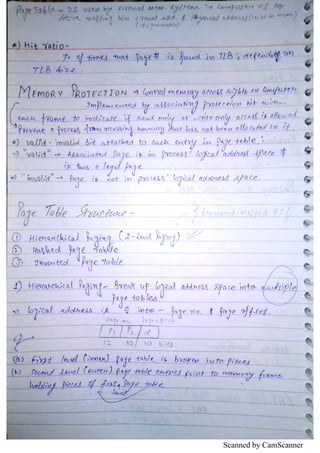 Page Table - DS used by virtual mem. systems in computer OS to
store mapping b/w virtual add. & physical address
*) Hit ratio-
% of times that page # is found in TLB's depending on
TLB size.
MEMORY PROTECTION → Control memory access rights on computer
Implemented by associating protection bit with
each frame to indicate if read only or write only access is allowed
Prevent a process from accessing memory that has not been allocated to it.
→) valid-invalid bit attached to each entry in page table:
→) "valid" → Associated page is in process' logical address space &
is thus a legal page
→) "invalid" → Page is not in process' logical address space.
Page Table Structure -
① Hierarchical Paging (2-Level Paging)
② Hashed Page Table
③ Inverted Page Table
1) Hierarchical Paging - Break up logical address space into multiple
page tables.
→ logical address is ÷ into - page no. & page offset.
Page no. Page offset
P1 | P2 | d
12 10 10 bits
(a) First level (inner) page table is broken into pieces
(b) Second level (outer) page table entries point to memory frame
holding pieces of first page table
level
Scanned by CamScanner